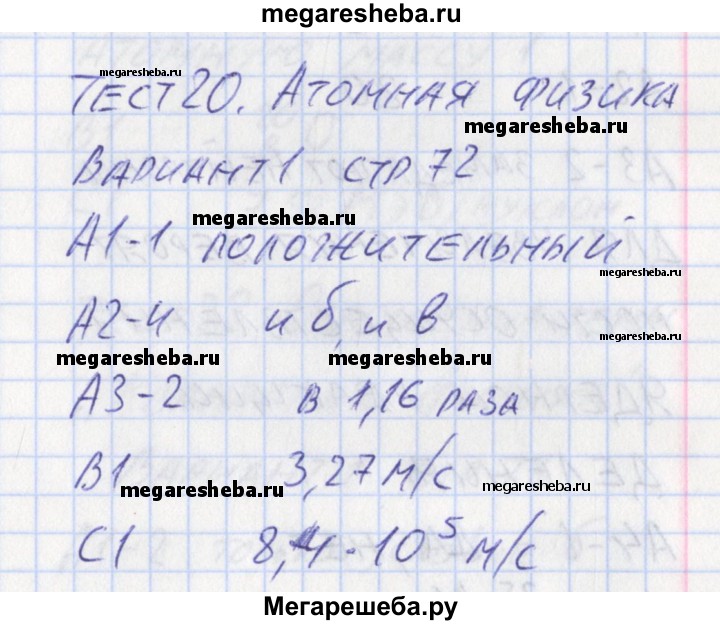 megaresheba.ru
megaresheba.ru
Тест 20. Атомная физика
megaresheba.ru
Вариант 1 стр 72
megaresheba.ru
А1-1 положительный
megaresheba.ru
А2-4 и б, и в
megaresheba.ru
megaresheba.ru megaresheba.ru
А3-2 в 1,16 раза
В1 3,27 м/с
megaresheba.ru megaresheba.ru
С1 8,4·10⁵ м/с
Мегарешеба.ру